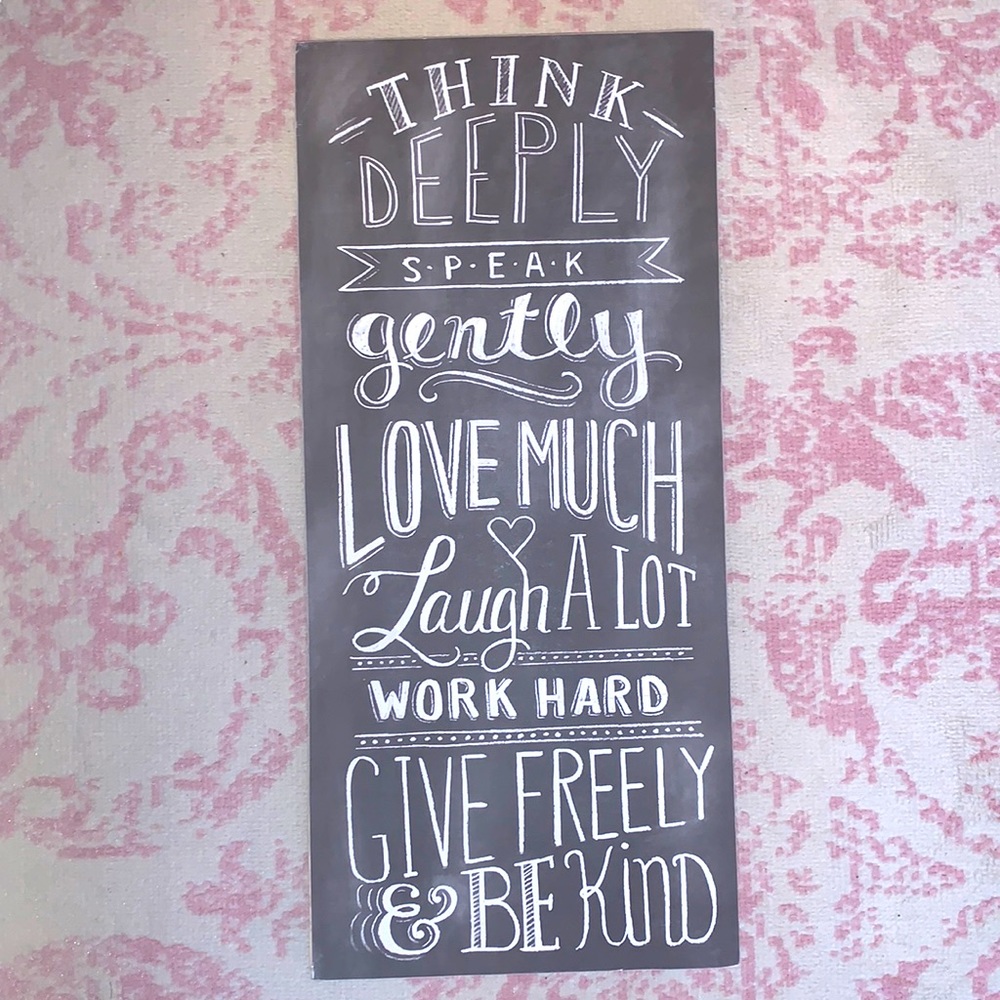 THINK
DEEPLY
S·P·E·A·K
gently
LOVE MUCH
Laugh A LOT
WORK HARD
GIVE FREELY
& BE KinD